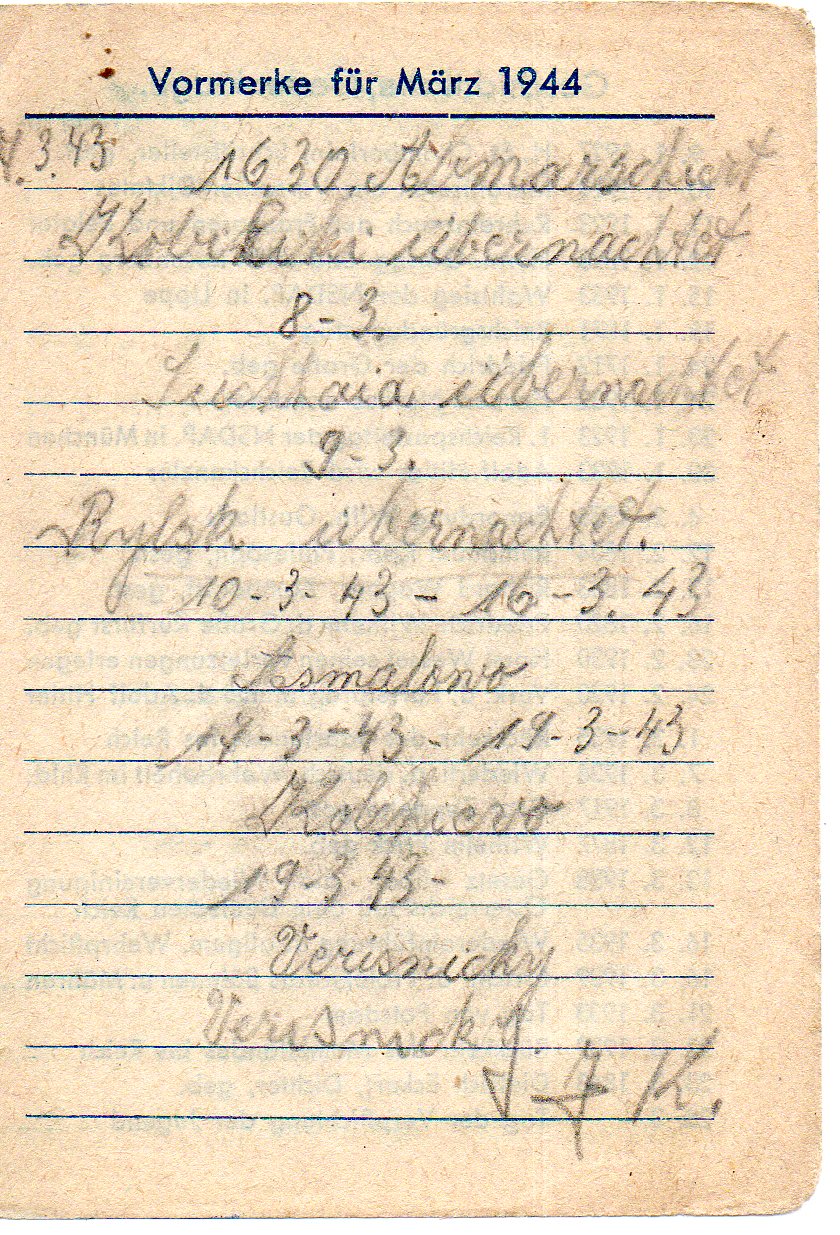 Vormerke für März 1944
7.3.43 16.30. Abmarschiert
Kobilki übernachtet
8-3.
Suchaia übernachtet
9-3.
Rylsk übernachtet.
10-3-43 - 16-3.43
Asmalowo
17-3-43 - 19-3-43
19-3 43-
Verisnicky
Verisnicky.
7 K.